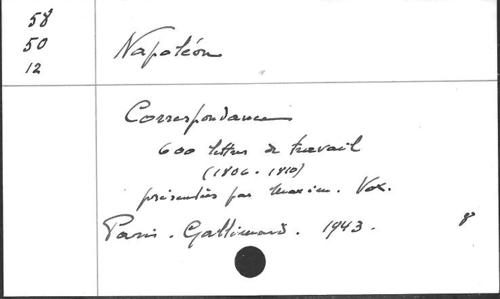 58
50
12
Napoléon
Correspondance
600 lettres de travail
(1806-1810)
présentées par Maxim. Vox.
Paris. Gallimard. 1943. 8